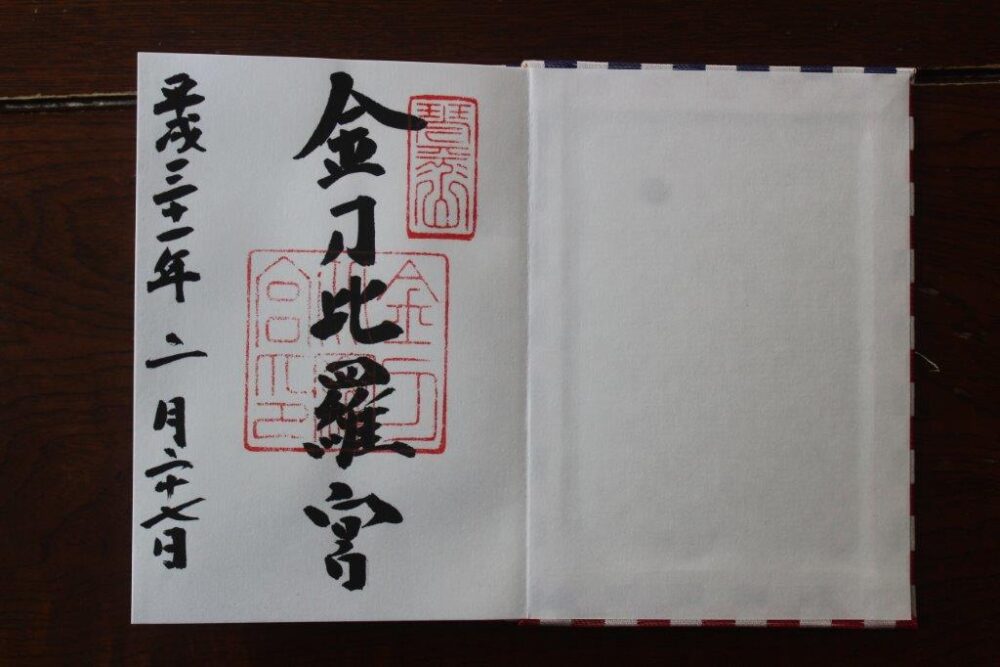 琴平山
金刀比羅宮
金刀
比羅
宮印
平成三十一年二月二十七日